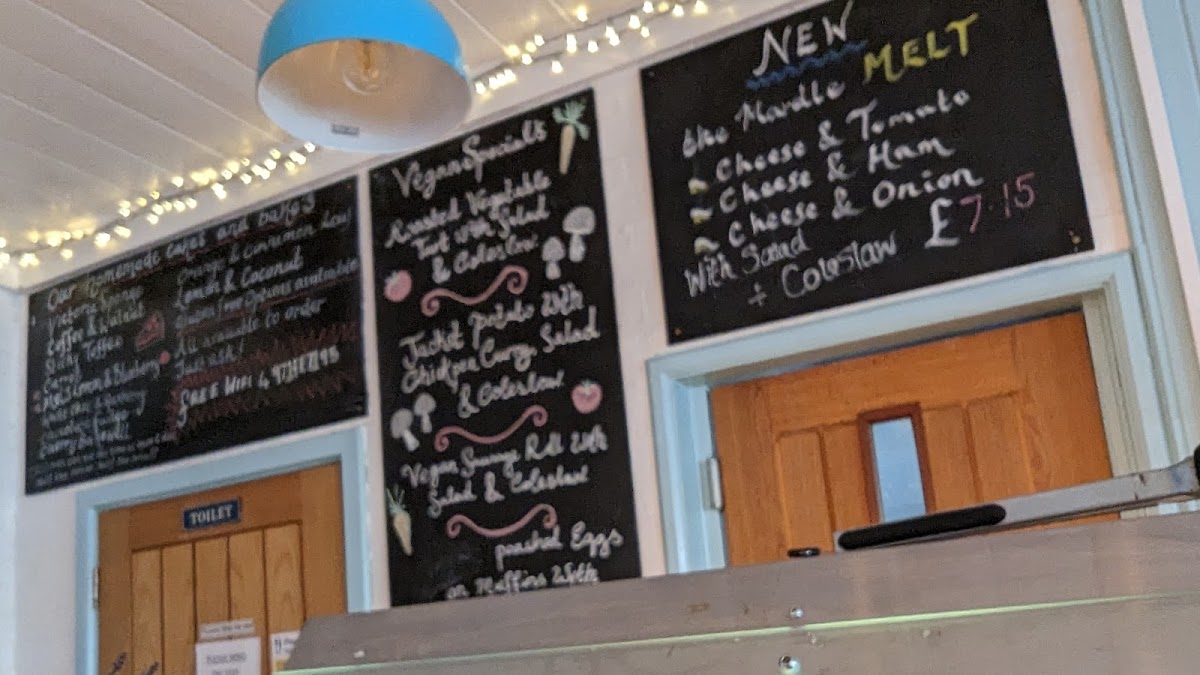 Our homemade cakes and bakes
Victoria Sponge
Coffee & Walnut
Sticky Toffee
Carrot
Lemon & Blueberry
Orange & Cinnamon
Lemon & Coconut
Gluten free options available
All available to order
Just ask!
FREE WIFI
TOILET
Vegan Specials
Roasted Vegetable
Tart with Salad
& Coleslaw
Jacket potato With
Chickpea Curry, Salad
& Coleslaw
Vegan Sausage Roll With
Salad & Coleslaw
poached Eggs
on Muffins With
NEW
the Mardle MELT
Cheese & Tomato
Cheese & Ham
Cheese & Onion
With Salad
+ Coleslaw £7.15